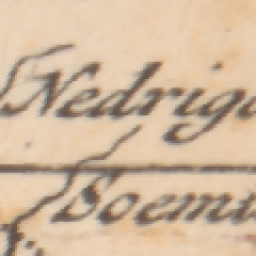 Nedriga
Soemi